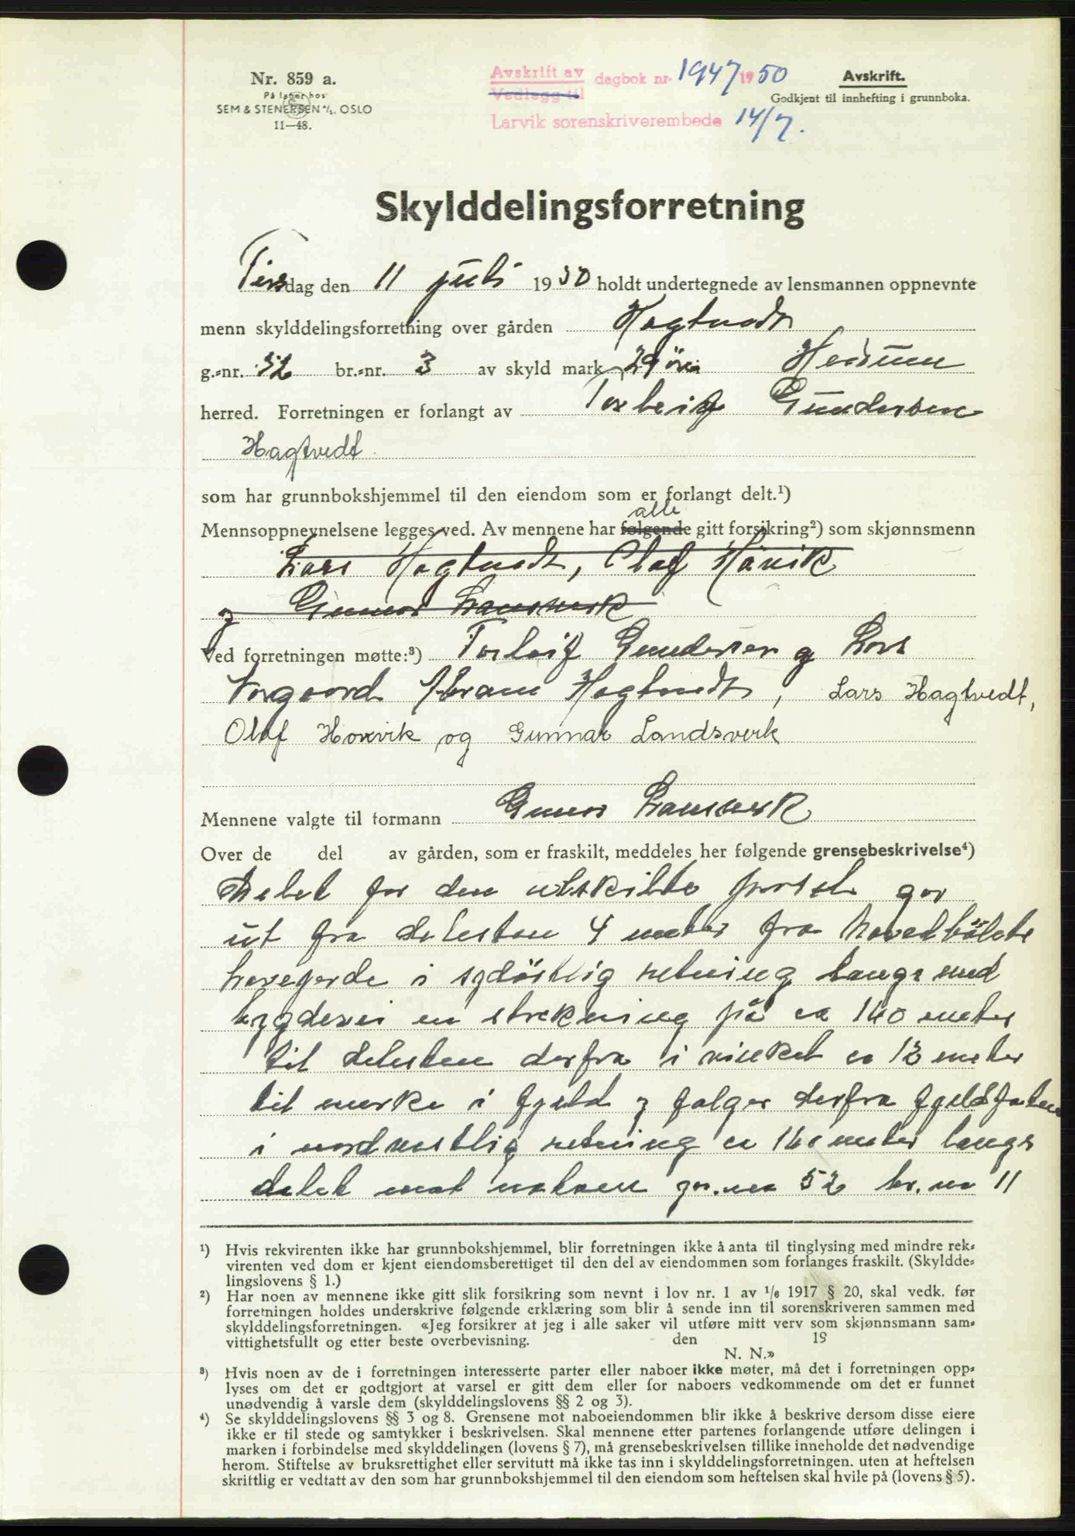 Nr. 859 a.
På lager hos
SEM & STENERSEN A/S. OSLO
11—48.
Avskrift av
Vedlegg til
dagbok nr. 1947 1950
Larvik sorenskriverembede 14/7.
Avskrift.
Godkjent til innhefting i grunnboka.
Skylddelingsforretning
Tirsdag den 11 juli 1950 holdt undertegnede av lensmannen oppnevnte
menn skylddelingsforretning over gården Hagtvedt
g.-nr. 52 br.-nr. 3 av skyld mark 29 øre Hedrum
herred. Forretningen er forlangt av Torleif Gundersen
Hagtvedt
som har grunnbokshjemmel til den eiendom som er forlangt delt.¹)
alle
Mennsoppnevnelsene legges ved. Av mennene har følgende gitt forsikring²) som skjønnsmenn
Lars Hagtvedt, Olaf Håvik
og Gunnar Landsverk
Ved forretningen møtte:³) Torleif Gundersen og Lars
Abram Hagtvedt, Lars Hagtvedt,
Olaf og Gunnar Landsverk
Mennene valgte til formann Gunnar Landsverk
Over de del av gården, som er fraskilt, meddeles her følgende grensebeskrivelse⁴)
Delet for den utskilte parsel gar
ut fra delesten 4 meter fra hovedbølets
havegjerde i sydøstlig retning langs med
bygdevei en strekning på ca 140 meter
til delesten derfra i vinkel ca 12 meter
til merke i fjeld og følger derfra fjeldfoten
i nordvestlig retning ca 140 meter langs
delet mot naboen gr. no 52 br. no 11
¹) Hvis rekvirenten ikke har grunnbokshjemmel, blir forretningen ikke å anta til tinglysing med mindre rek-
virenten ved dom er kjent eiendomsberettiget til den del av eiendommen som forlanges fraskilt. (Skyldde-
lingslovens § 1.)
²) Har noen av mennene ikke gitt slik forsikring som nevnt i lov nr. 1 av 1/6 1917 § 20, skal vedk. før
forretningen holdes underskrive følgende erklæring som blir å sende inn til sorenskriveren sammen med
skylddelingsforretningen. «Jeg forsikrer at jeg i alle saker vil utføre mitt verv som skjønnsmann sam-
vittighetsfullt og etter beste overbevisning. den 19
N. N.»
³) Hvis noen av de i forretningen interesserte parter eller naboer ikke møter, må det i forretningen opp-
lyses om det er godtgjort at varsel er gitt dem eller for naboers vedkommende om det er funnet
unødvendig å varsle dem (skylddelingslovens §§ 2 og 3).
⁴) Se skylddelingslovens §§ 3 og 8. Grensene mot naboeiendommen blir ikke å beskrive dersom disse eiere
ikke er til stede og samtykker i beskrivelsen. Skal mennene etter partenes forlangende utføre delingen i
marken i forbindelse med skylddelingen (lovens § 7), må grensebeskrivelsen tillike inneholde det nødvendige
herom. Stiftelse av bruksrettighet eller servitutt må ikke tas inn i skylddelingsforretningen. uten at heftelsen
skriftlig er vedtatt av den som har grunnbokshjemmel til den eiendom som heftelsen skal hvile på (lovens § 5).